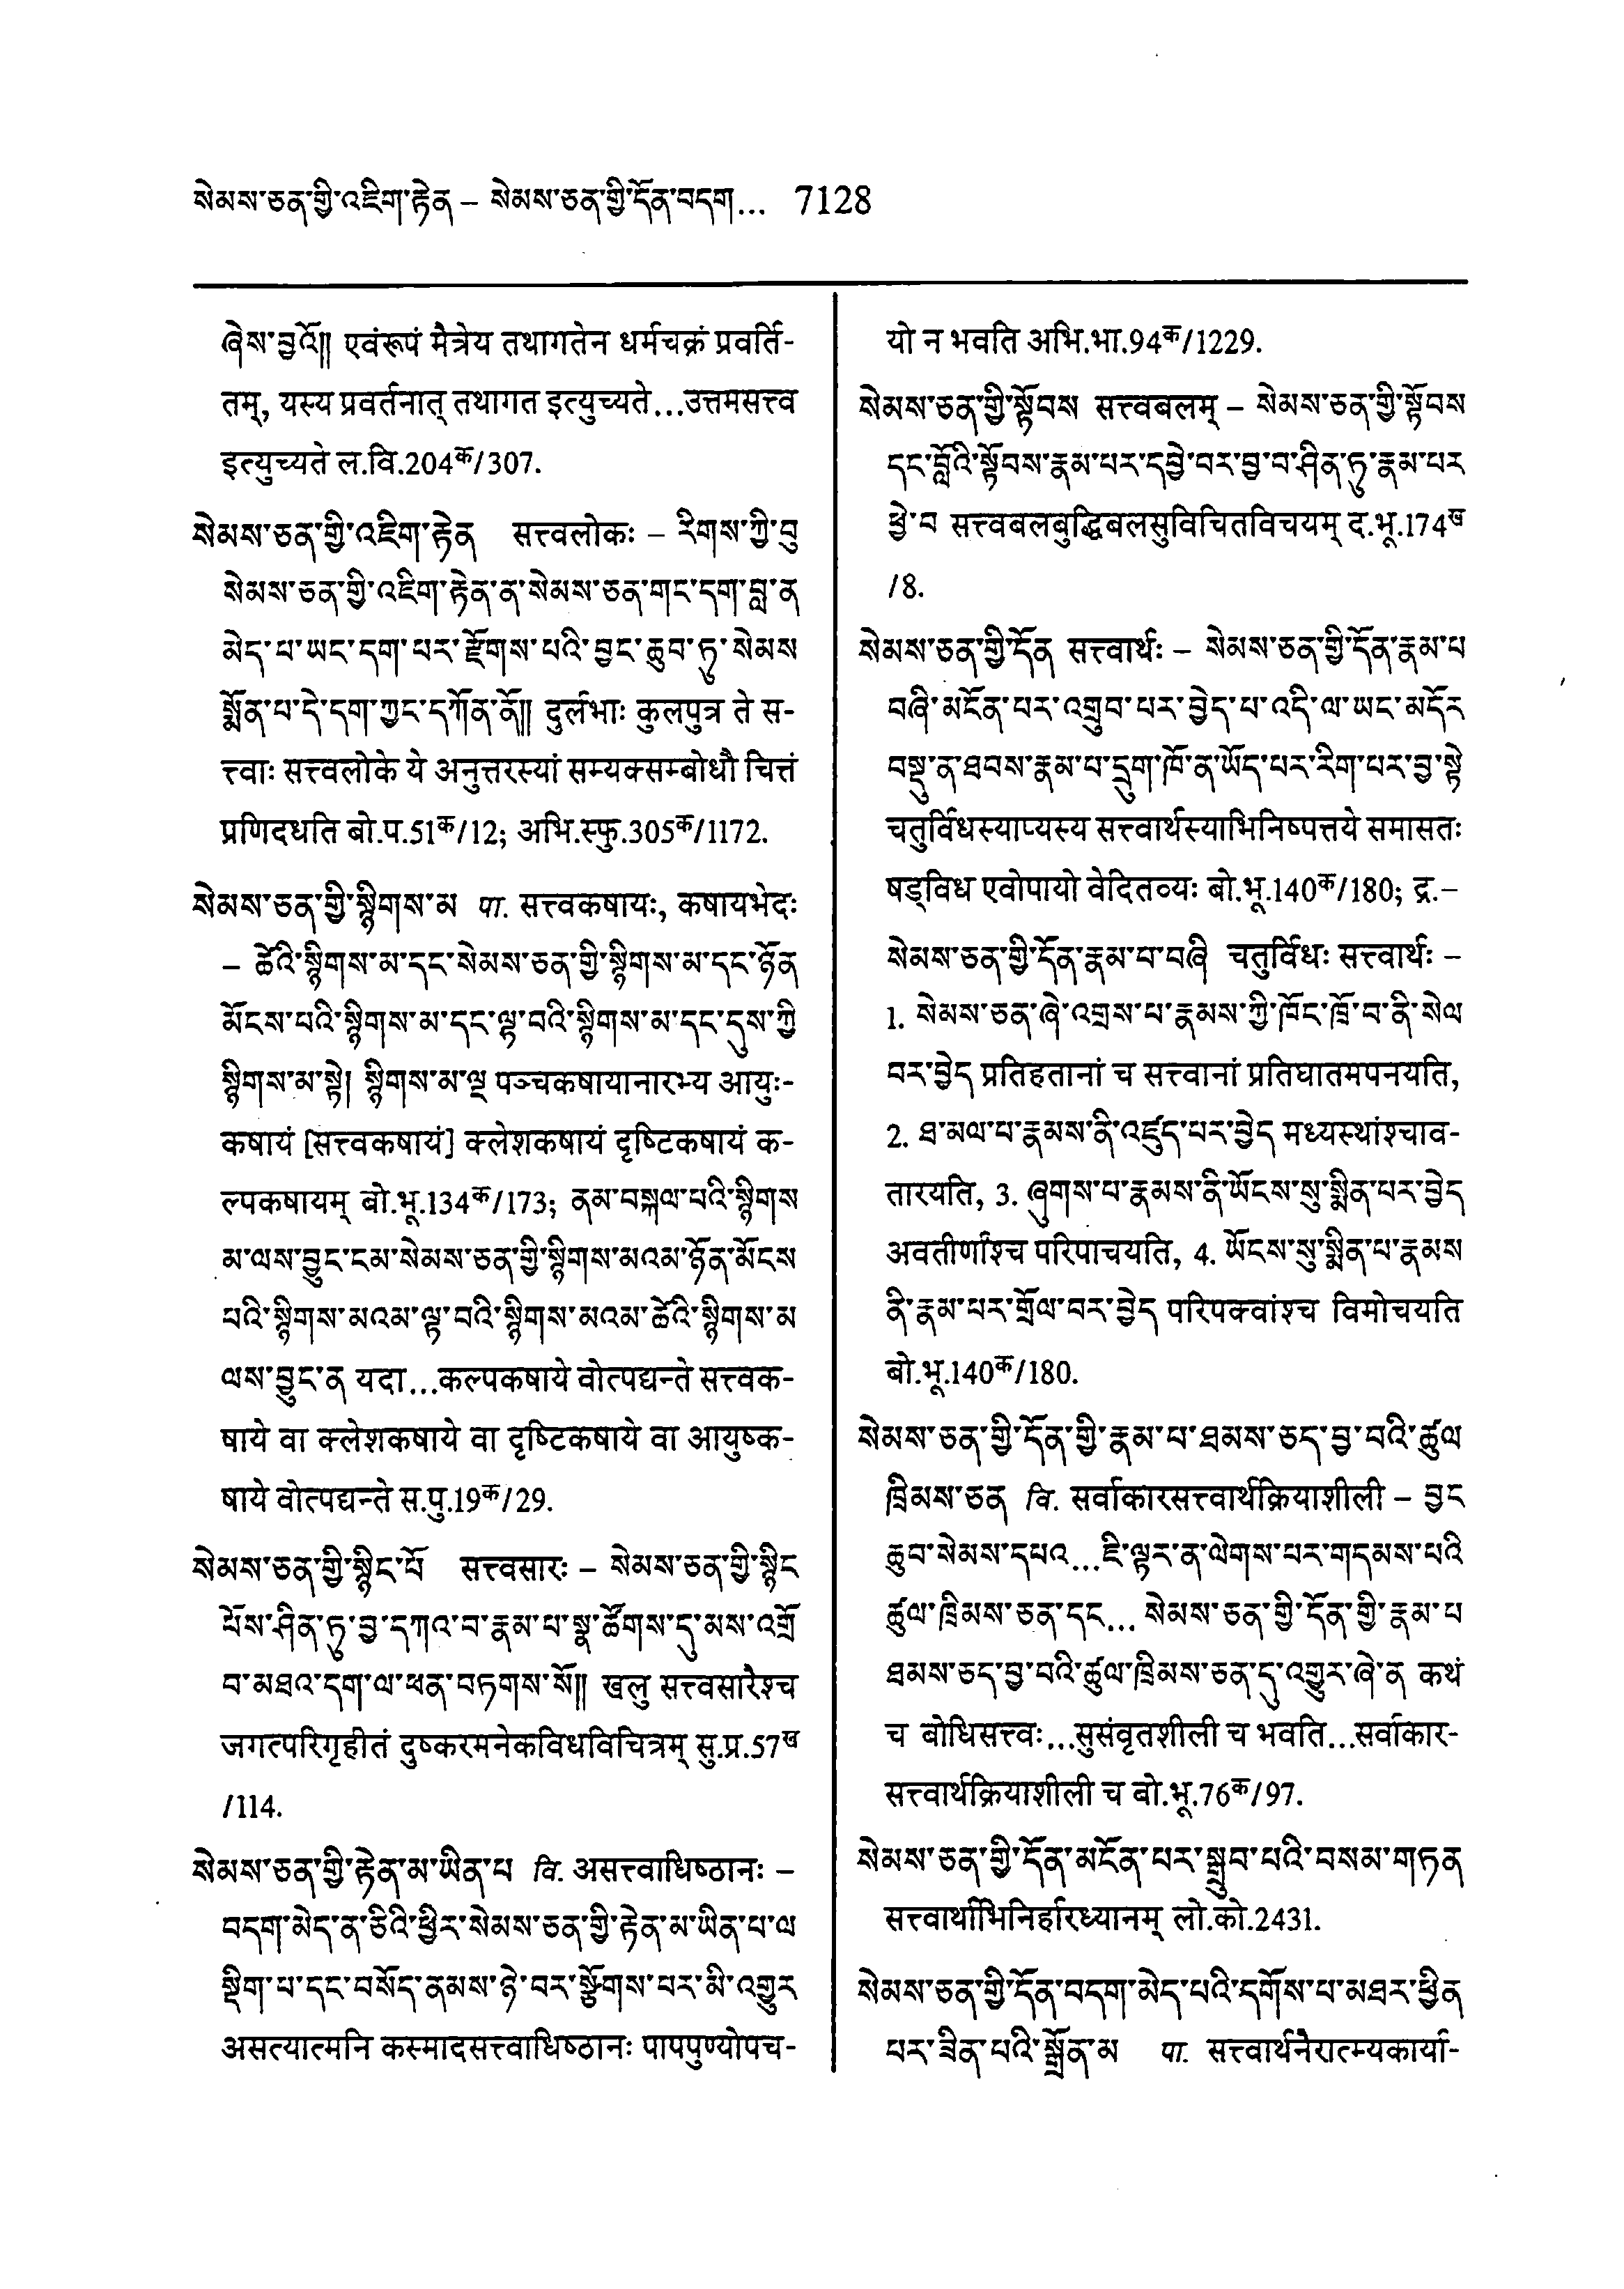 སེམས་ཅན་གྱི་འཇིག་རྟེན – སེམས་ཅན་གྱི་དོན་བདག... 7128
ཞེས་བྱའོ།། एवंरूपं मैत्रेय तथागतेन धर्मचक्रं प्रवर्ति-
तम्, यस्य प्रवर्तनात् तथागत इत्युच्यते...उत्तमसत्त्व
इत्युच्यते ल.वि.204क/307.
སེམས་ཅན་གྱི་འཇིག་རྟེན सत्त्वलोकः – རིགས་ཀྱི་བུ
སེམས་ཅན་གྱི་འཇིག་རྟེན་ན་སེམས་ཅན་གང་དག་བླ་ན
མེད་པ་ཡང་དག་པར་རྫོགས་པའི་བྱང་ཆུབ་ཏུ་སེམས
སྨོན་པ་དེ་དག་ཀྱང་དཀོན་ནོ།། दुर्लभाः कुलपुत्र ते स-
त्त्वाः सत्त्वलोके ये अनुत्तरस्यां सम्यक्सम्बोधौ चित्तं
प्रणिदधति बो.प.51क/12; अभि.स्फु.305क/1172.
སེམས་ཅན་གྱི་སྙིགས་མ पा. सत्त्वकषायः, कषायभेदः
– ཚེའི་སྙིགས་མ་དང་སེམས་ཅན་གྱི་སྙིགས་མ་དང་ཉོན
མོངས་པའི་སྙིགས་མ་དང་ལྟ་བའི་སྙིགས་མ་དང་དུས་ཀྱི
སྙིགས་མ་སྟེ། སྙིགས་མ་ལྔ पञ्चकषायानारभ्य आयुः-
कषायं [सत्त्वकषायं] क्लेशकषायं दृष्टिकषायं क-
ल्पकषायम् बो.भू.134क/173; ནམ་བསྐལ་པའི་སྙིགས
མ་ལས་བྱུང་ངམ་སེམས་ཅན་གྱི་སྙིགས་མའམ་ཉོན་མོངས
པའི་སྙིགས་མའམ་ལྟ་བའི་སྙིགས་མའམ་ཚེའི་སྙིགས་མ
ལས་བྱུང་ན यदा...कल्पकषाये वोत्पद्यन्ते सत्त्वक-
षाये वा क्लेशकषाये वा दृष्टिकषाये वा आयुष्क-
षाये वोत्पद्यन्ते स.पु.19क/29.
སེམས་ཅན་གྱི་སྙིང་པོ सत्त्वसारः – སེམས་ཅན་གྱི་སྙིང
པོས་ཤིན་ཏུ་བྱ་དཀའ་བ་རྣམ་པ་སྣ་ཚོགས་དུ་མས་འགྲོ
བ་མཐའ་དག་ལ་ཕན་བཏགས་སོ།། खलु सत्त्वसारैश्च
जगत्परिगृहीतं दुष्करमनेकविधविचित्रम् सु.प्र.57ख
/114.
སེམས་ཅན་གྱི་རྟེན་མ་ཡིན་པ वि. असत्त्वाधिष्ठानः –
བདག་མེད་ན་ཅིའི་ཕྱིར་སེམས་ཅན་གྱི་རྟེན་མ་ཡིན་པ་ལ
སྡིག་པ་དང་བསོད་ནམས་ཉེ་བར་སྩོགས་པར་མི་འགྱུར
असत्यात्मनि कस्मादसत्त्वाधिष्ठानः पापपुण्योपच-
यो न भवति अभि.भा.94क/1229.
སེམས་ཅན་གྱི་སྟོབས सत्त्वबलम् – སེམས་ཅན་གྱི་སྟོབས
དང་བློའི་སྟོབས་རྣམ་པར་དབྱེ་བར་བྱ་བ་ཤིན་ཏུ་རྣམ་པར
ཕྱེ་བ सत्त्वबलबुद्धिबलसुविचितविचयम् द.भू.174ख
/8.
སེམས་ཅན་གྱི་དོན सत्त्वार्थः – སེམས་ཅན་གྱི་དོན་རྣམ་པ
བཞི་མངོན་པར་འགྲུབ་པར་བྱེད་པ་འདི་ལ་ཡང་མདོར
བསྡུ་ན་ཐབས་རྣམ་པ་དྲུག་ཁོ་ན་ཡོད་པར་རིག་པར་བྱ་སྟེ
चतुर्विधस्याप्यस्य सत्त्वार्थस्याभिनिष्पत्तये समासतः
षड्विध एवोपायो वेदितव्यः बो.भू.140क/180; द्र.–
སེམས་ཅན་གྱི་དོན་རྣམ་པ་བཞི चतुर्विधः सत्त्वार्थः –
1. སེམས་ཅན་ཞེ་འགྲས་པ་རྣམས་ཀྱི་ཁོང་ཁྲོ་བ་ནི་སེལ
བར་བྱེད प्रतिहतानां च सत्त्वानां प्रतिघातमपनयति,
2. ཐ་མལ་པ་རྣམས་ནི་འཛུད་པར་བྱེད मध्यस्थांश्चाव-
तारयति, 3. ཞུགས་པ་རྣམས་ནི་ཡོངས་སུ་སྨིན་པར་བྱེད
अवतीर्णांश्च परिपाचयति, 4. ཡོངས་སུ་སྨིན་པ་རྣམས
ནི་རྣམ་པར་གྲོལ་བར་བྱེད परिपक्वांश्च विमोचयति
बो.भू.140क/180.
སེམས་ཅན་གྱི་དོན་གྱི་རྣམ་པ་ཐམས་ཅད་བྱ་བའི་ཚུལ
ཁྲིམས་ཅན वि. सर्वाकारसत्त्वार्थक्रियाशीली – བྱང
ཆུབ་སེམས་དཔའ...ཇི་ལྟར་ན་ལེགས་པར་གདམས་པའི
ཚུལ་ཁྲིམས་ཅན་དང... སེམས་ཅན་གྱི་དོན་གྱི་རྣམ་པ
ཐམས་ཅད་བྱ་བའི་ཚུལ་ཁྲིམས་ཅན་དུ་འགྱུར་ཞེ་ན कथं
च बोधिसत्त्वः...सुसंवृतशीली च भवति...सर्वाकार-
सत्त्वार्थक्रियाशीली च बो.भू.76क/97.
སེམས་ཅན་གྱི་དོན་མངོན་པར་སྒྲུབ་པའི་བསམ་གཏན
सत्त्वार्थाभिनिर्हारध्यानम् लो.को.2431.
སེམས་ཅན་གྱི་དོན་བདག་མེད་པའི་དགོས་པ་མཐར་ཕྱིན
པར་ཟིན་པའི་སྒྲོན་མ पा. सत्त्वार्थनैरात्म्यकार्या-